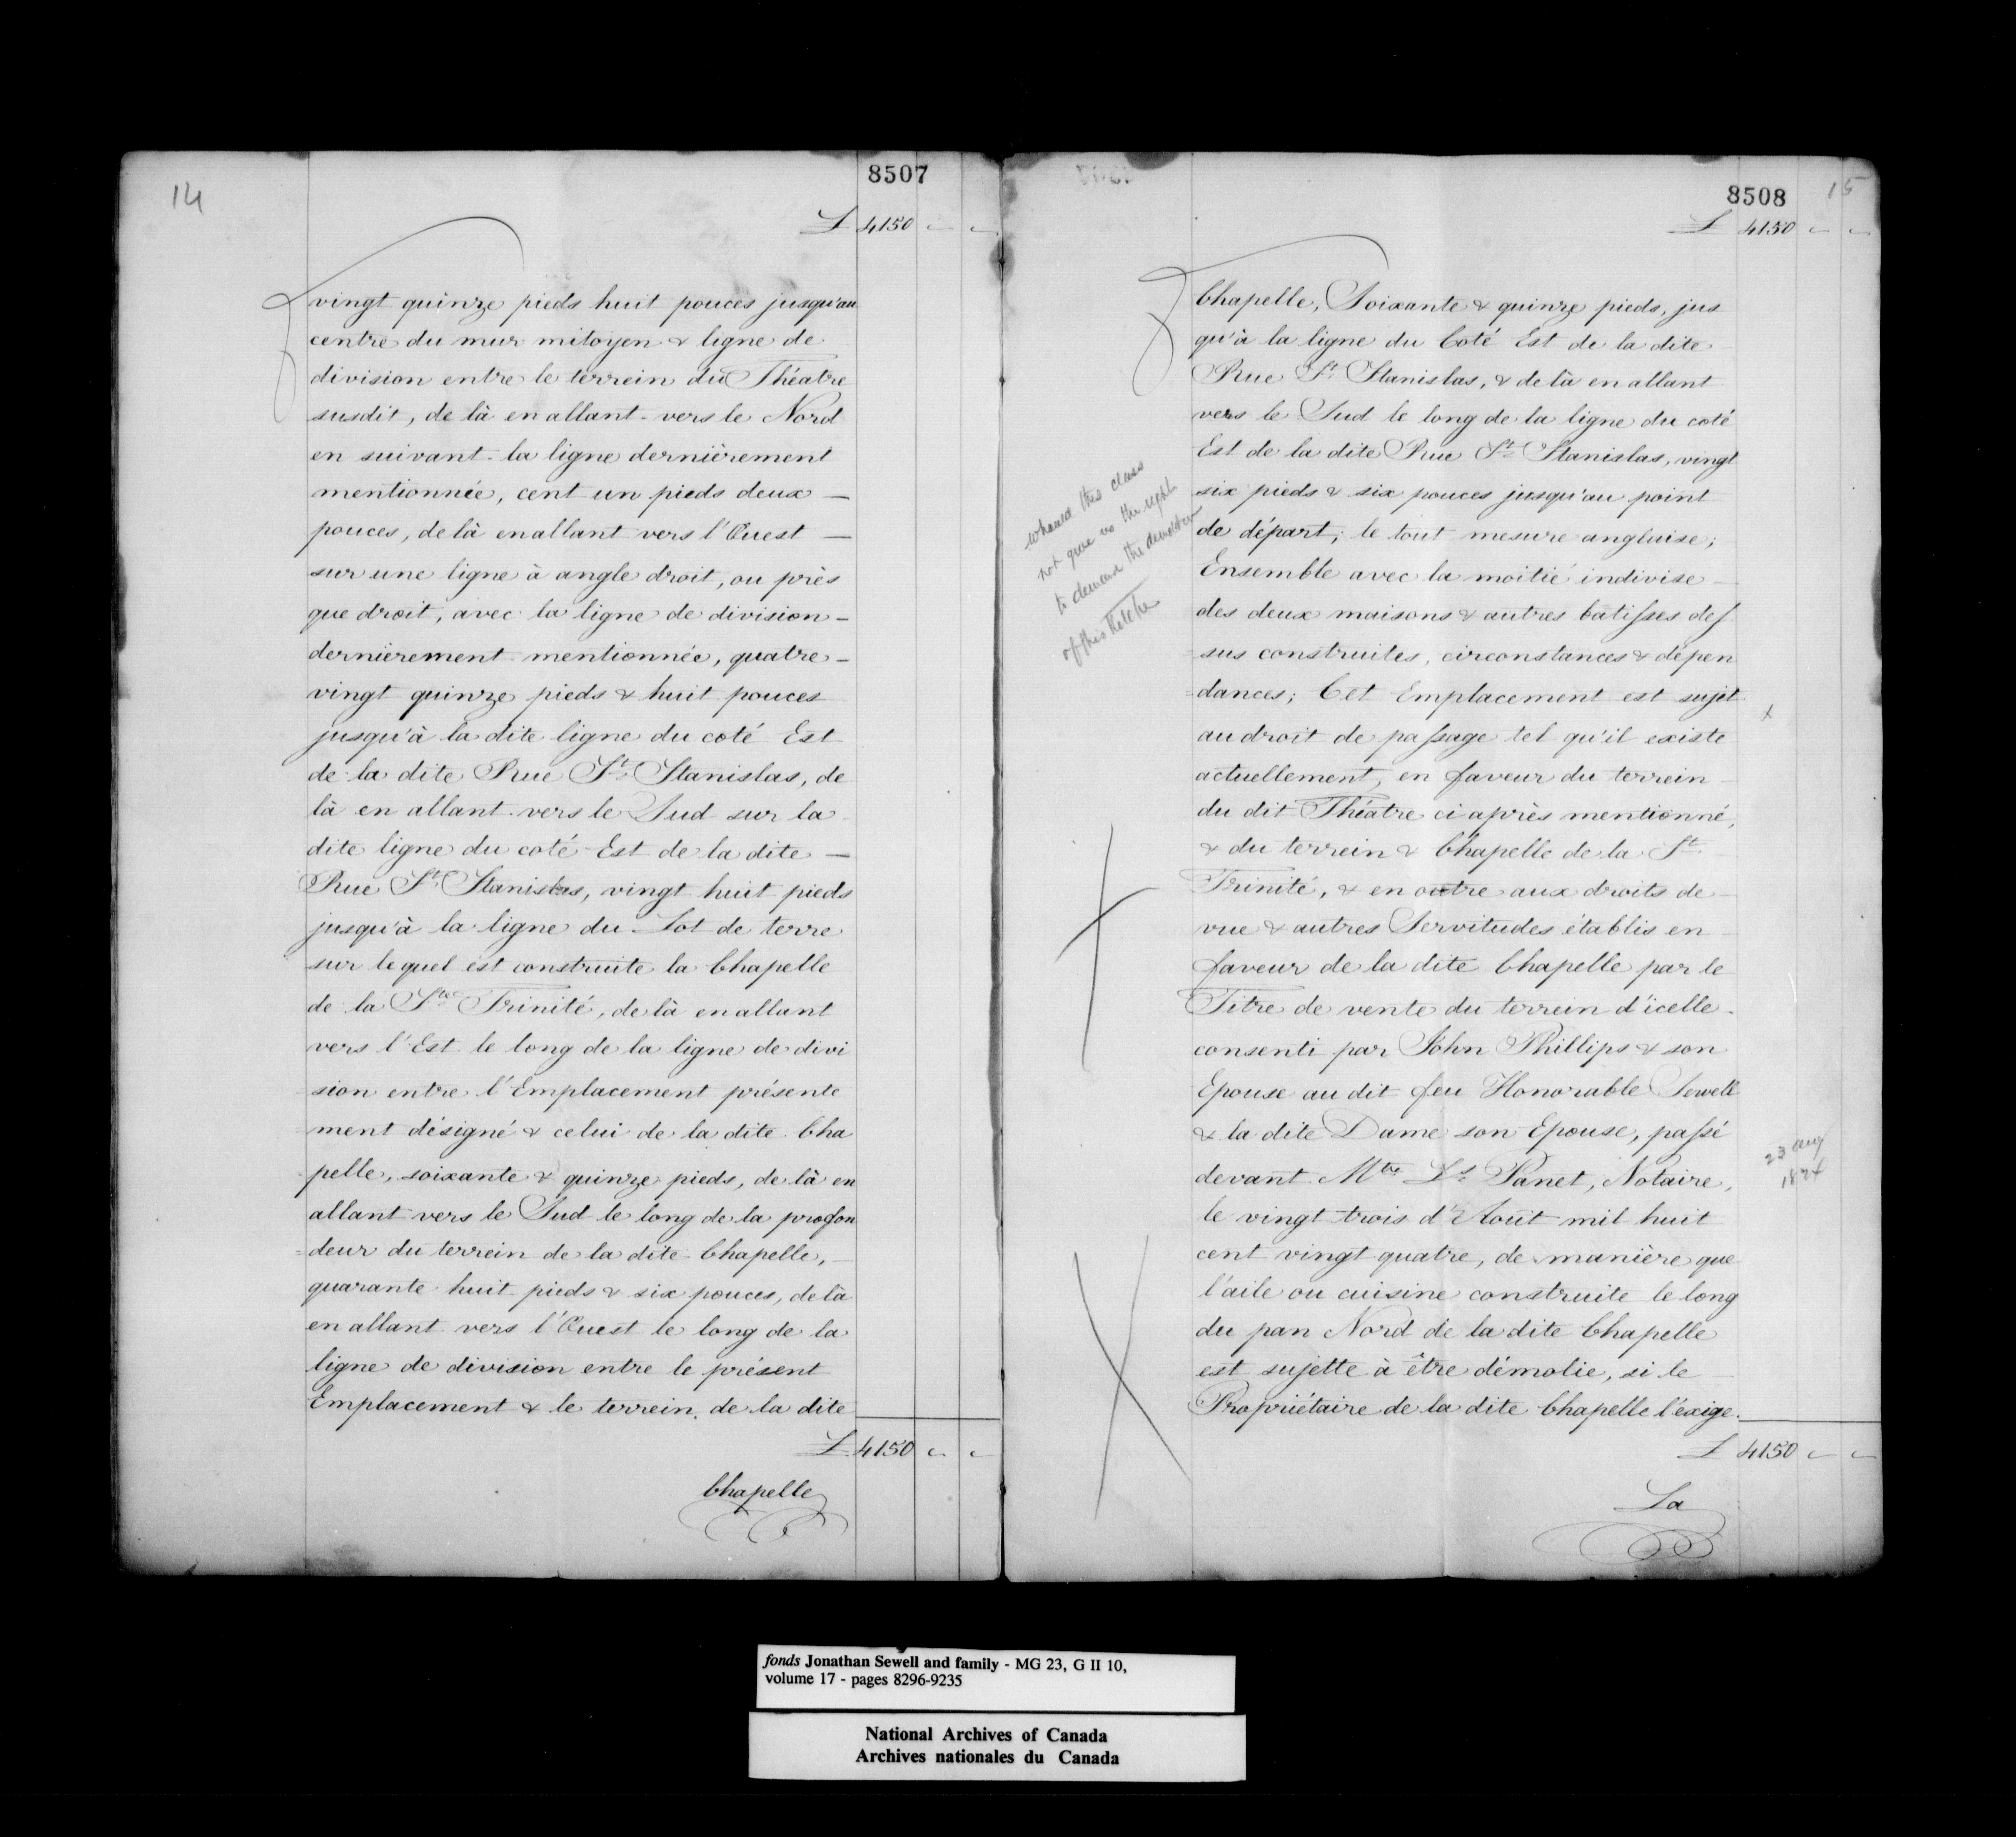 14
8507
£ 4150 " "
vingt quinze pieds huit pouces jusqu'au
centre du mur mitoyen & ligne de
division entre le terrein du Théatre
susdit, de là en allant vers le Nord
en suivant la ligne dernièrement
mentionnée, cent un pieds deux —
pouces, de là en allant vers l'Ouest —
sur une ligne à angle droit, ou près
que droit, avec la ligne de division —
dernièrement mentionnée, quatre —
vingt quinze pieds & huit pouces
jusqu'à la dite ligne du coté Est
de la dite Rue St. Stanislas, de
là en allant vers le Sud sur la
dite ligne du coté Est de la dite —
Rue St. Stanislas, vingt huit pieds
jusqu'à la ligne du Lot de terre
sur lequel est construite la Chapelle
de la Ste. Trinité, de là en allant
vers l'Est le long de la ligne de divi
sion entre l'Emplacement présente
ment désigné & celui de la dite Cha
pelle, soixante & quinze pieds, de là en
allant vers le Sud le long de la profon
deur du terrein de la dite Chapelle, —
quarante huit pieds & six pouces, de là
en allant vers l'Ouest le long de la
ligne de division entre le présent
Emplacement & le terrein de la dite
£ 4150 " "
Chapelle
15
8508
£ 4150 " "
Chapelle, Soixante & quinze pieds, jus
qu'à la ligne du Coté Est de la dite
Rue St. Stanislas, & de là en allant
vers le Sud le long de la ligne du coté
Est de la dite Rue St. Stanislas, vingt
six pieds & six pouces jusqu'au point
de départ; le tout mesure anglaise;
Ensemble avec la moitié indivise —
des deux maisons & autres batisses des
sus construites, circonstances & dépen
dances; Cet Emplacement est sujet
au droit de passage tel qu'il existe
actuellement, en faveur du terrein
du dit Théatre ci après mentionné,
& du terrein & Chapelle de la St.
Trinité, & en outre aux droits de —
vue & autres Servitudes établis en
faveur de la dite Chapelle par le
Titre de vente du terrein d'icelle
consenti par John Phillips & son
Epouse au dit feu Honorable Sewell
& la dite Dame son Epouse, passé
devant Mtre Ls. Panet, Notaire,
le vingt trois d'Aout mil huit
cent vingt quatre, de manière que
l'aile ou cuisine construite le long
du pan Nord de la dite Chapelle
est sujette à être démolie, si le —
Propriétaire de la dite Chapelle l'exige.
£ 4150 " "
La
this claus
not give us the right
to demand the
of this
x
23 aug
1824
fonds Jonathan Sewell and family - MG 23, G II 10,
volume 17 - pages 8296-9235
National Archives of Canada
Archives nationales du Canada